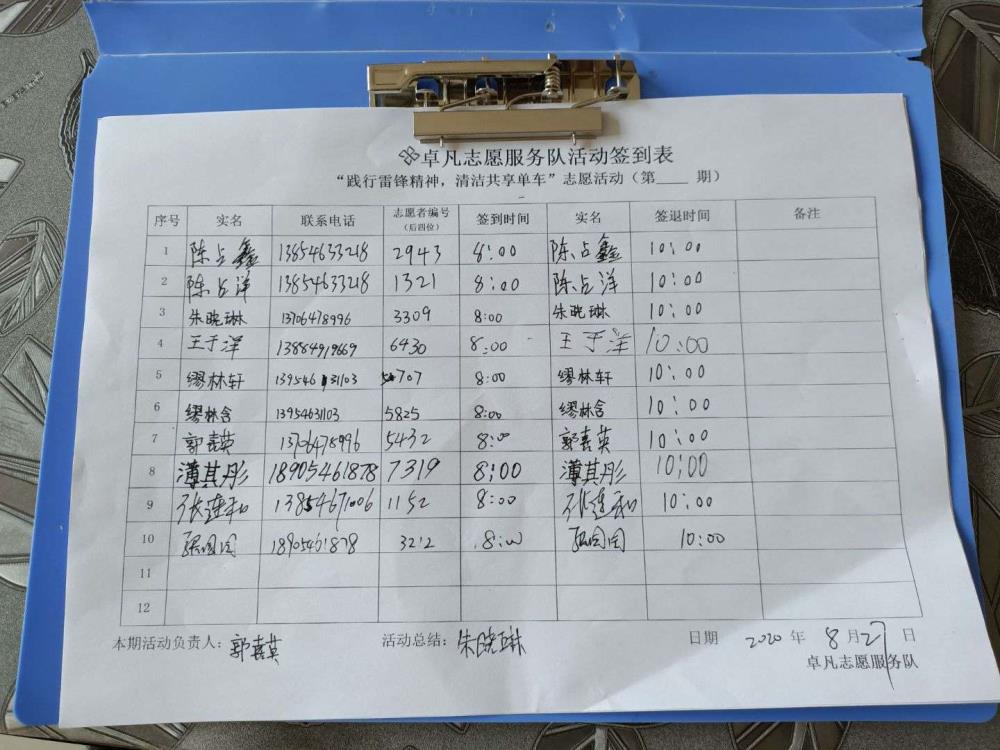 卓凡志愿服务队活动签到表
“践行雷锋精神，清洁共享单车”志愿活动（第____ 期）
序号 实名 联系电话 志愿者编号（后四位） 签到时间 实名 签退时间 备注
1 陈占鑫 13854633218 2943 8:00 陈占鑫 10:00
2 陈占洋 13854633218 1321 8:00 陈占洋 10:00
3 朱晓琳 13706478996 3309 8:00 朱晓琳 10:00
4 王于洋 13884919669 6430 8:00 王于洋 10:00
5 缪林轩 13954631103 5707 8:00 缪林轩 10:00
6 缪林含 13954631103 5825 8:00 缪林含 10:00
7 郭喜英 13706478996 5432 8:00 郭喜英 10:00
8 薄其彤 18905461878 7319 8:00 薄其彤 10:00
9 张莲和 13854671006 1152 8:00 张莲和 10:00
10 18905461878 3212 8:00 10:00
11
12
本期活动负责人：郭喜英 活动总结：朱晓琳 日期 2020 年 8 月 27 日
卓凡志愿服务队